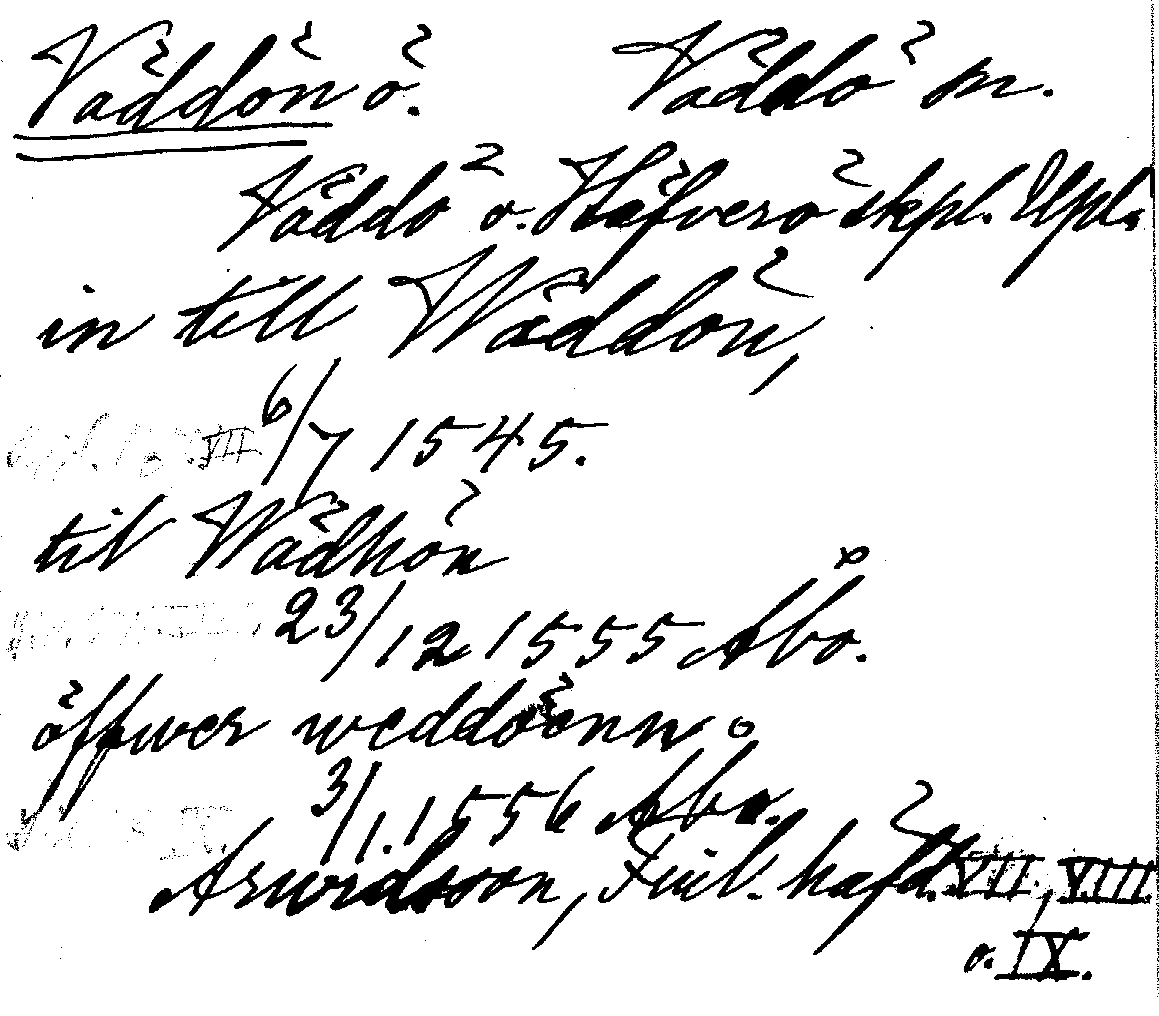 Väddön ö. Väddö sn.
Väddö o. Häfverö skpl. Upl.
in till Wäddön,
6/7 1545.
til Wädhön
23/12 1555 Åbo.
öffwer weddöenn
3/1. 1556 Åbo.
Arwidsson, Finl. häfd. VII, VIII.
o. IX.